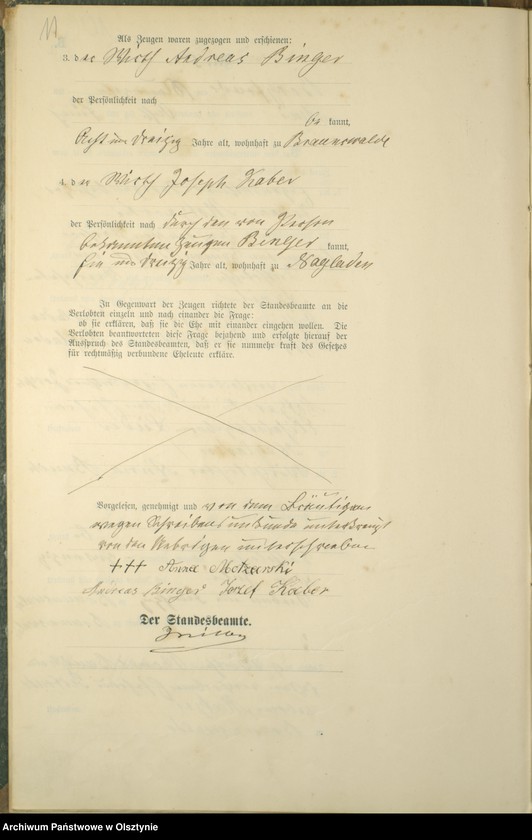 11
Als Zeugen waren zugezogen und erschienen:
3. der Wirth Andreas Binger
der Persönlichkeit nach
be kannt,
Acht und dreißig Jahre alt, wohnhaft zu Braunswalde
4. der Wirth Joseph Kaber
der Persönlichkeit nach durch den von Person
bekannten Zeugen Binger kannt,
und dreißig Jahre alt, wohnhaft zu Nagladen
In Gegenwart der Zeugen richtete der Standesbeamte an die
Verlobten einzeln und nach einander die Frage:
ob sie erklären, daß sie die Ehe mit einander eingehen wollen. Die
Verlobten beantworteten diese Frage bejahend und erfolgte hierauf der
Ausspruch des Standesbeamten, daß er sie nunmehr kraft des Gesetzes
für rechtmäßig verbundene Eheleute erkläre.
Vorgelesen, genehmigt und von dem Bräutigam
wegen Schreibensunkunde unterkreuzt
von den Uebrigen unterschrieben
+++ Anna
Andreas Binger Jozef Kaber
Der Standesbeamte.
Archiwum Państwowe w Olsztynie